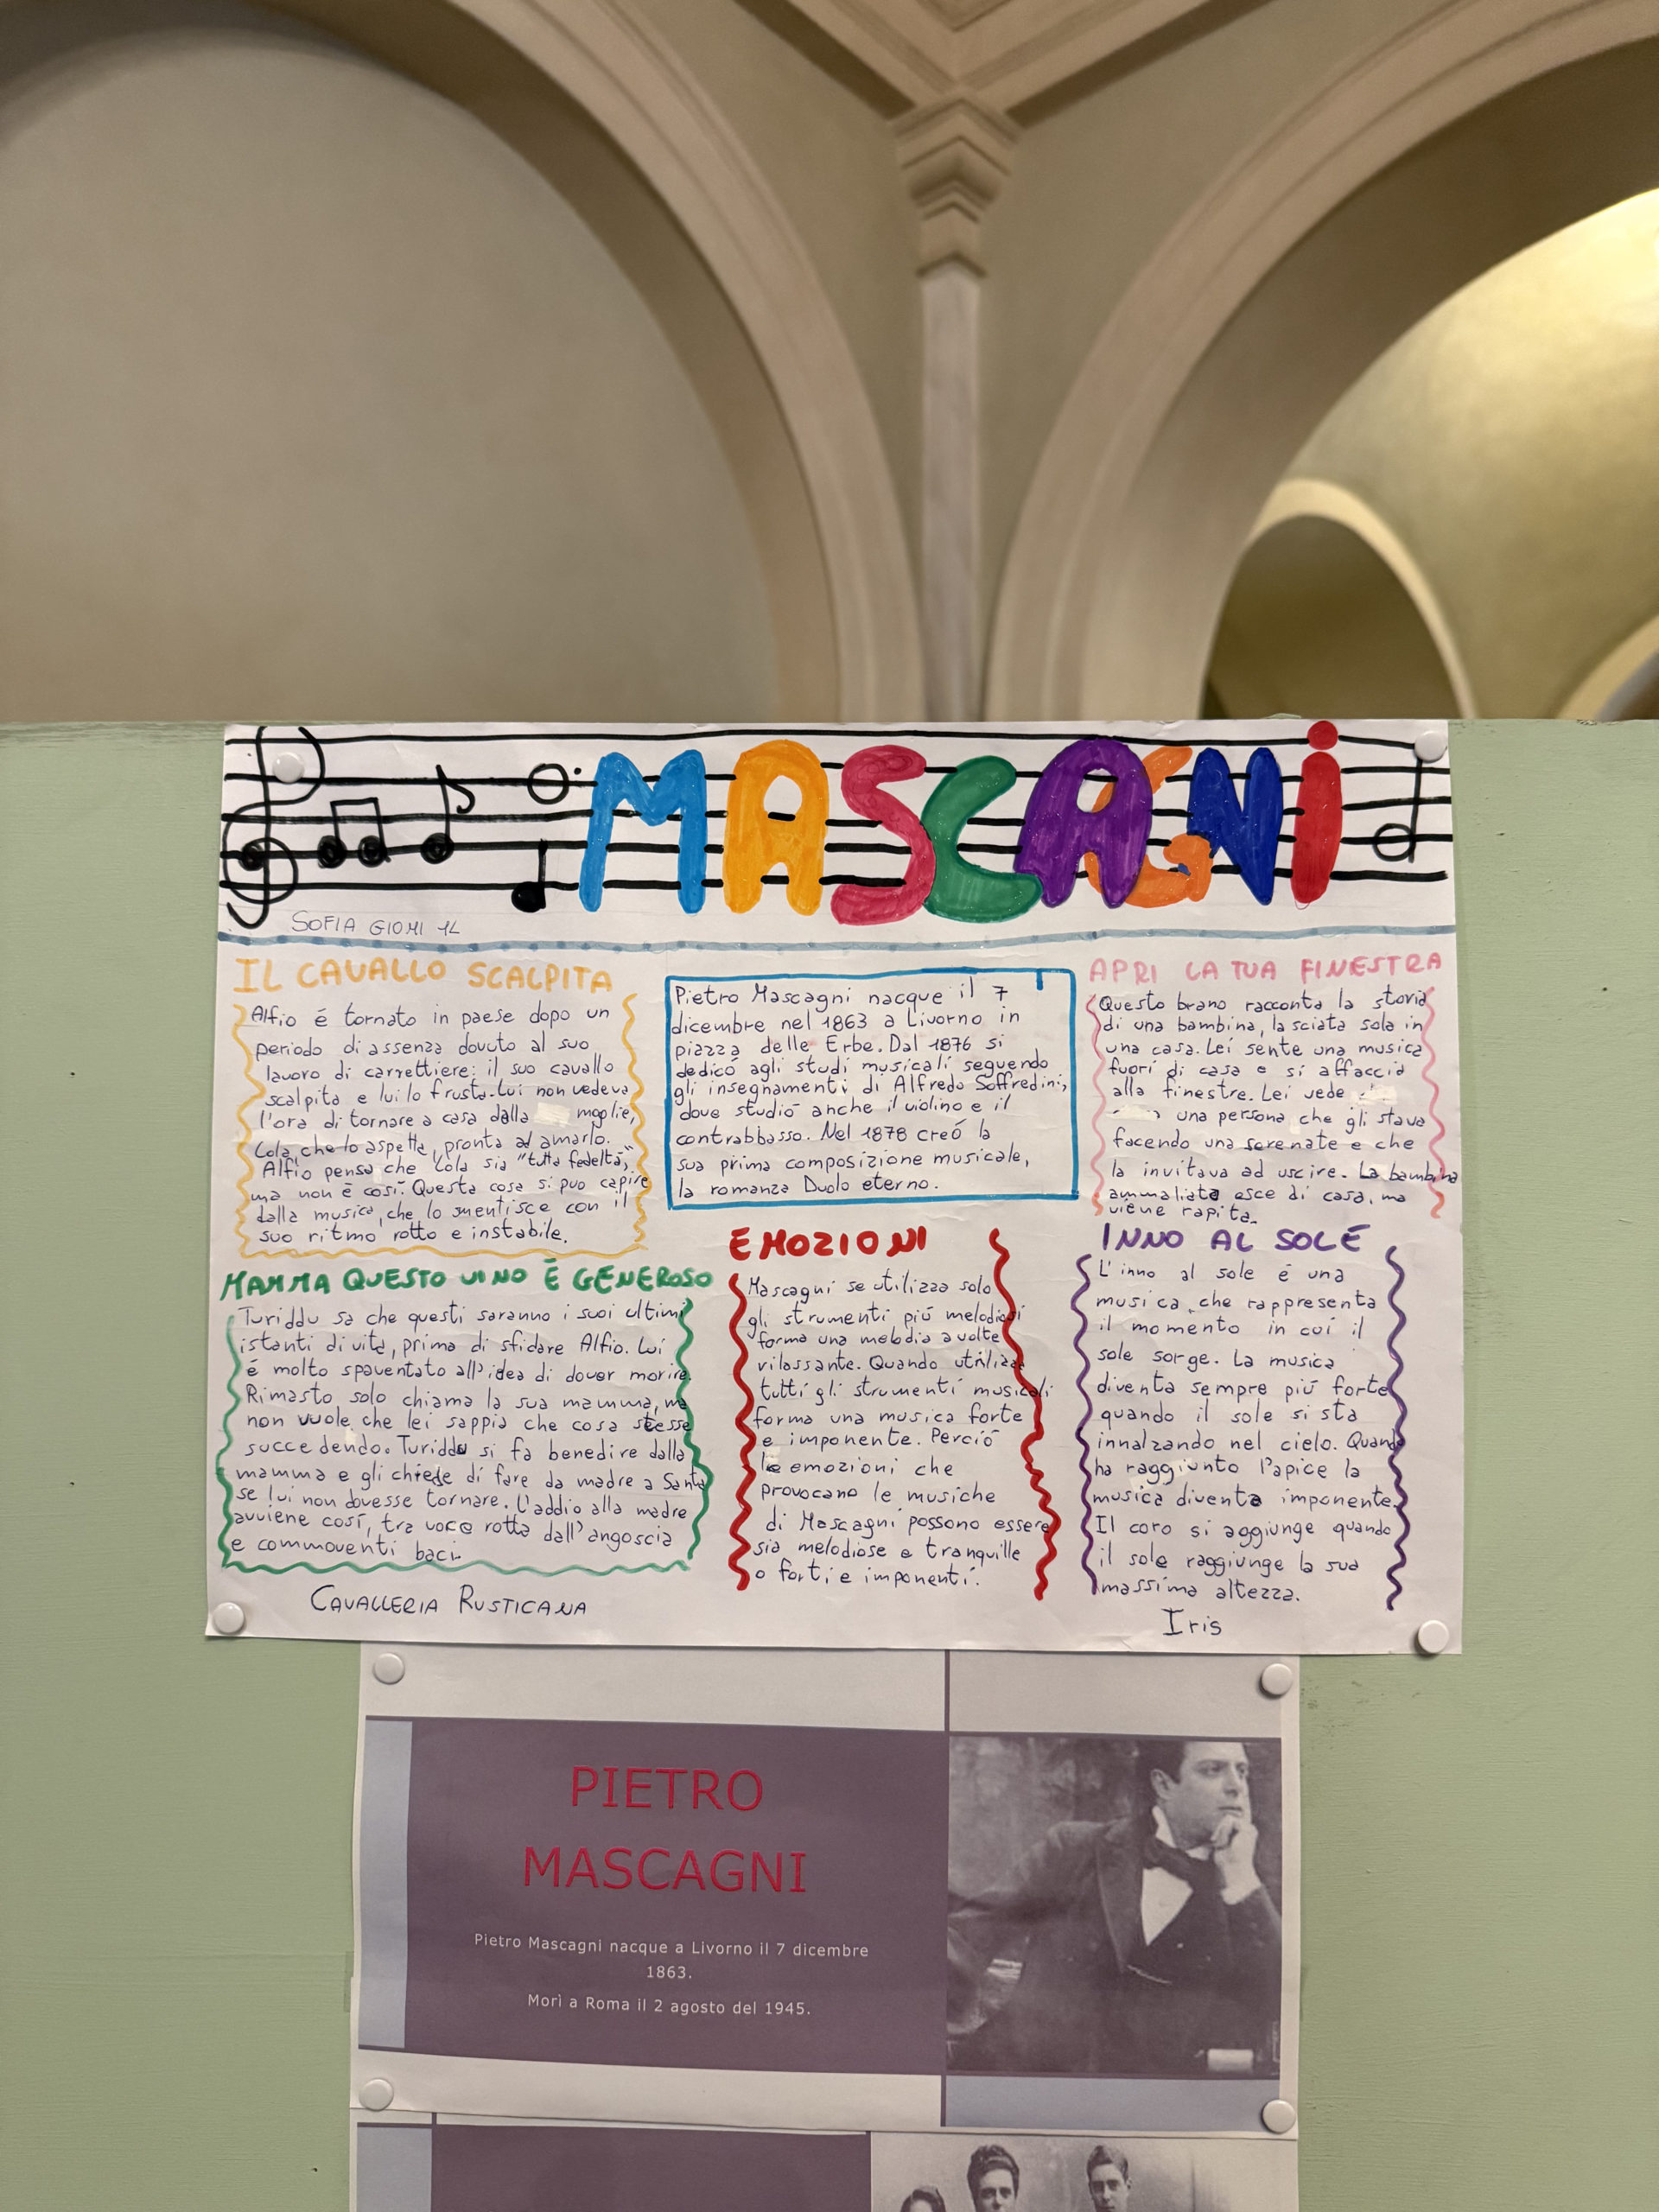 MASCAGNi
SOFIA GIOMI 1L
IL CAVALLO SCALPITA
Alfio é tornato in paese dopo un
periodo di assenza dovuto al suo
lavoro di carrettiere: il suo cavallo
scalpita e lui lo frusta. Lui non vedeva
l'ora di tornare a casa dalla moglie,
Lola, che lo aspetta, pronta ad amarlo.
Alfio pensa che Lola sia "tutta fedeltà",
ma non è così. Questa cosa si puo capire
dalla musica, che lo smentisce con il
suo ritmo rotto e instabile.
MAMMA QUESTO VINO È GENEROSO
Turiddu sa che questi saranno i suoi ultimi
istanti di vita, prima di sfidare Alfio. Lui
é molto spaventato all'idea di dover morire.
Rimasto solo chiama la sua mamma, ma
non vuole che lei sappia che cosa stesse
succedendo. Turiddu si fa benedire dalla
mamma e gli chiede di fare da madre a Santa
se lui non dovesse tornare. L'addio alla madre
avviene così, tra voce rotta dall'angoscia
e commoventi baci.
CAVALLERIA RUSTICANA
Pietro Mascagni nacque il 7
dicembre nel 1863 a Livorno in
piazza delle Erbe. Dal 1876 si
dedicó agli studi musicali seguendo
gli insegnamenti di Alfredo Soffredini,
dove studió anche il violino e il
contrabbasso. Nel 1878 creó la
sua prima composizione musicale,
la romanza Duolo eterno.
EMOZIONI
Mascagni se utilizza solo
gli strumenti piú melodiosi
forma una melodia a volte
rilassante. Quando utilizza
tutti gli strumenti musicali
forma una musica forte
e imponente. Perció
le emozioni che
provocano le musiche
di Mascagni possono essere
sia melodiose e tranquille
o forti e imponenti.
APRI LA TUA FINESTRA
Questo brano racconta la storia
di una bambina, lasciata sola in
una casa. Lei sente una musica
fuori di casa e si affaccia
alla finestre. Lei vede
una persona che gli stava
facendo una serenate e che
la invitava ad uscire. La bambina
ammaliata esce di casa, ma
viene rapita.
INNO AL SOLE
L'inno al sole é una
musica che rappresenta
il momento in cui il
sole sorge. La musica
diventa sempre piú forte
quando il sole si sta
innalzando nel cielo. Quando
ha raggiunto l'apice la
musica diventa imponente.
Il coro si aggiunge quando
il sole raggiunge la sua
massima altezza.
Iris
PIETRO
MASCAGNI
Pietro Mascagni nacque a Livorno il 7 dicembre
1863.
Morì a Roma il 2 agosto del 1945.